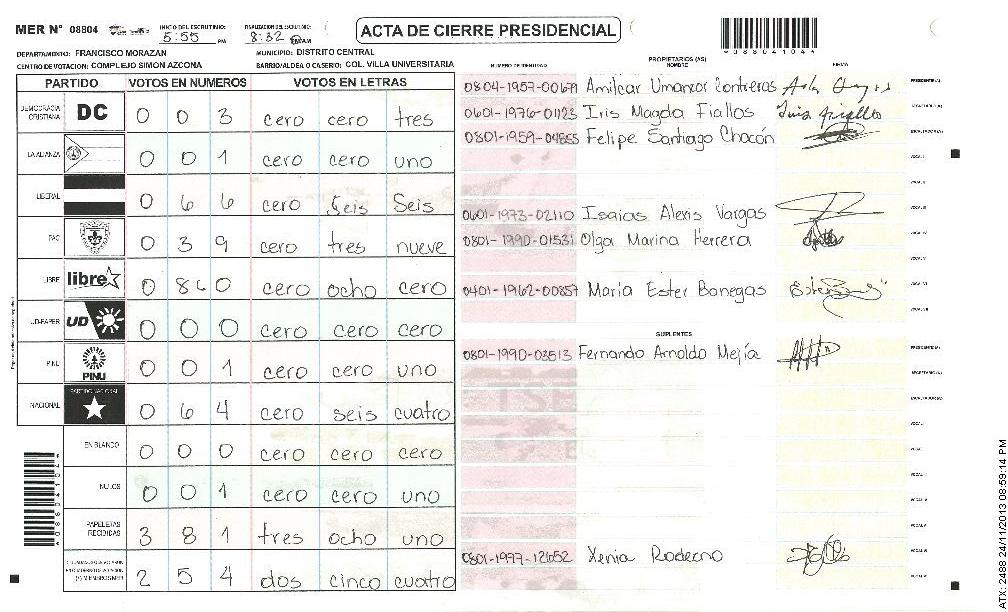 MER N° 08804 INICIO DEL ESCRUTINIO: 5:55 PM FINALIZACION DEL ESCRUTINIO: 8:32 AM
ACTA DE CIERRE PRESIDENCIAL
*0880410 4*
DEPARTAMENTO: FRANCISCO MORAZAN MUNICIPIO: DISTRITO CENTRAL
CENTRO DE VOTACION: COMPLEJO SIMON AZCONA BARRIO/ALDEA O CASERIO: COL. VILLA UNIVERSITARIA
PARTIDO VOTOS EN NUMEROS VOTOS EN LETRAS
DEMOCRACIA CRISTIANA DC 0 0 3 cero cero tres
LA ALIANZA 0 0 1 cero cero uno
LIBERAL 0 6 6 cero seis seis
PAC 0 3 9 cero tres nueve
LIBRE libre 0 8 0 cero ocho cero
UD-FAPER UD 0 0 0 cero cero cero
PINU PINU 0 0 1 cero cero uno
NACIONAL PARTIDO NACIONAL 0 6 4 cero seis cuatro
EN BLANCO 0 0 0 cero cero cero
NULOS 0 0 1 cero cero uno
PAPELETAS RECIBIDAS 3 8 1 tres ocho uno
2 5 4 dos cinco cuatro
NUMERO DE IDENTIDAD PROPIETARIOS (AS) NOMBRE FIRMA
Amilcar Umanzor Contreras PRESIDENTE(A)
0601-1976-01123 Iris Magda Fiallos Iris Fiallos SECRETARIO(A)
0801-1959-04855 Felipe Santiago Chacón ESCRUTADOR(A)
VOCAL I
VOCAL II
0601-1973-02110 Isaias Alexis Vargas VOCAL III
0801-1990-01531 Olga Marina Herrera VOCAL IV
VOCAL V
0401-1962-00857 Maria Ester Banegas VOCAL VI
SUPLENTES
0801-1990-03513 Fernando Arnoldo Mejía PRESIDENTE(A)
SECRETARIO(A)
ESCRUTADOR(A)
VOCAL I
0801-1997-12652 Xenia Rodezno
ATX: 2488 24/11/2013 08:59:14 PM